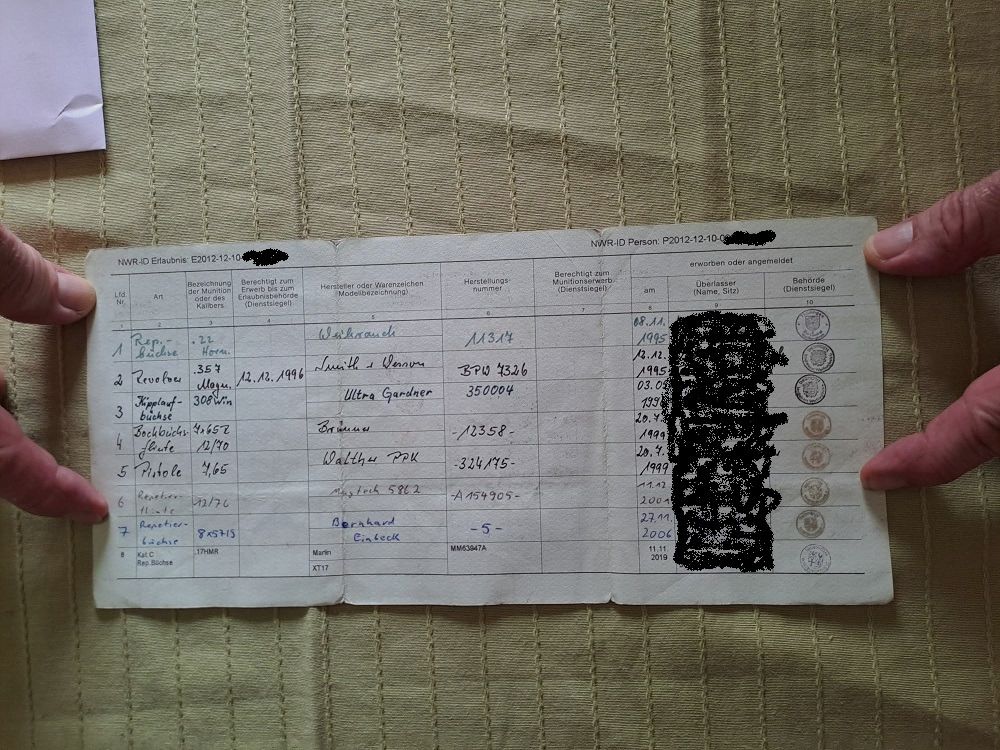 NWR-ID Erlaubnis: E2012-12-10-
NWR-ID Person: P2012-12-10-0
erworben oder angemeldet
Lfd Nr.
Art
Bezeichnung der Munition oder des Kalibers
Berechtigt zum Erwerb bis zum Erlaubnisbehörde (Dienstsiegel)
Hersteller oder Warenzeichen Modellbezeichnung)
Herstellungs- nummer
Berechtigt zum Munitionserwerb (Dienstsiegel)
am
Überlasser (Name, Sitz)
Behörde (Dienstsiegel)
1 2 3 4 5 6 7 8 9 10
1 Rep.- büchse .22 Horn. Weihrauch 11317 08.11. 1995
2 Revolver .357 Magn. 12.12.1996 Smith + Wesson BPW 7326 12.12. 1995
3 Kipplauf- büchse 308 Win Ultra Gardner 350004 03.0
4 Bockbüchs- flinte 12/70 -12358- 20.7. 1999
5 Pistole 7,65 Walther PPK -324175- 20.7. 1999
6 Repetier- flinte 12/76 -A154905- 11.12
7 Repetier- büchse 8x57IS Bernhard Einbeck -5- 27.11. 2006
8 Kat.C Rep.Büchse .17HMR Marlin XT17 MM63947A 11.11. 2019